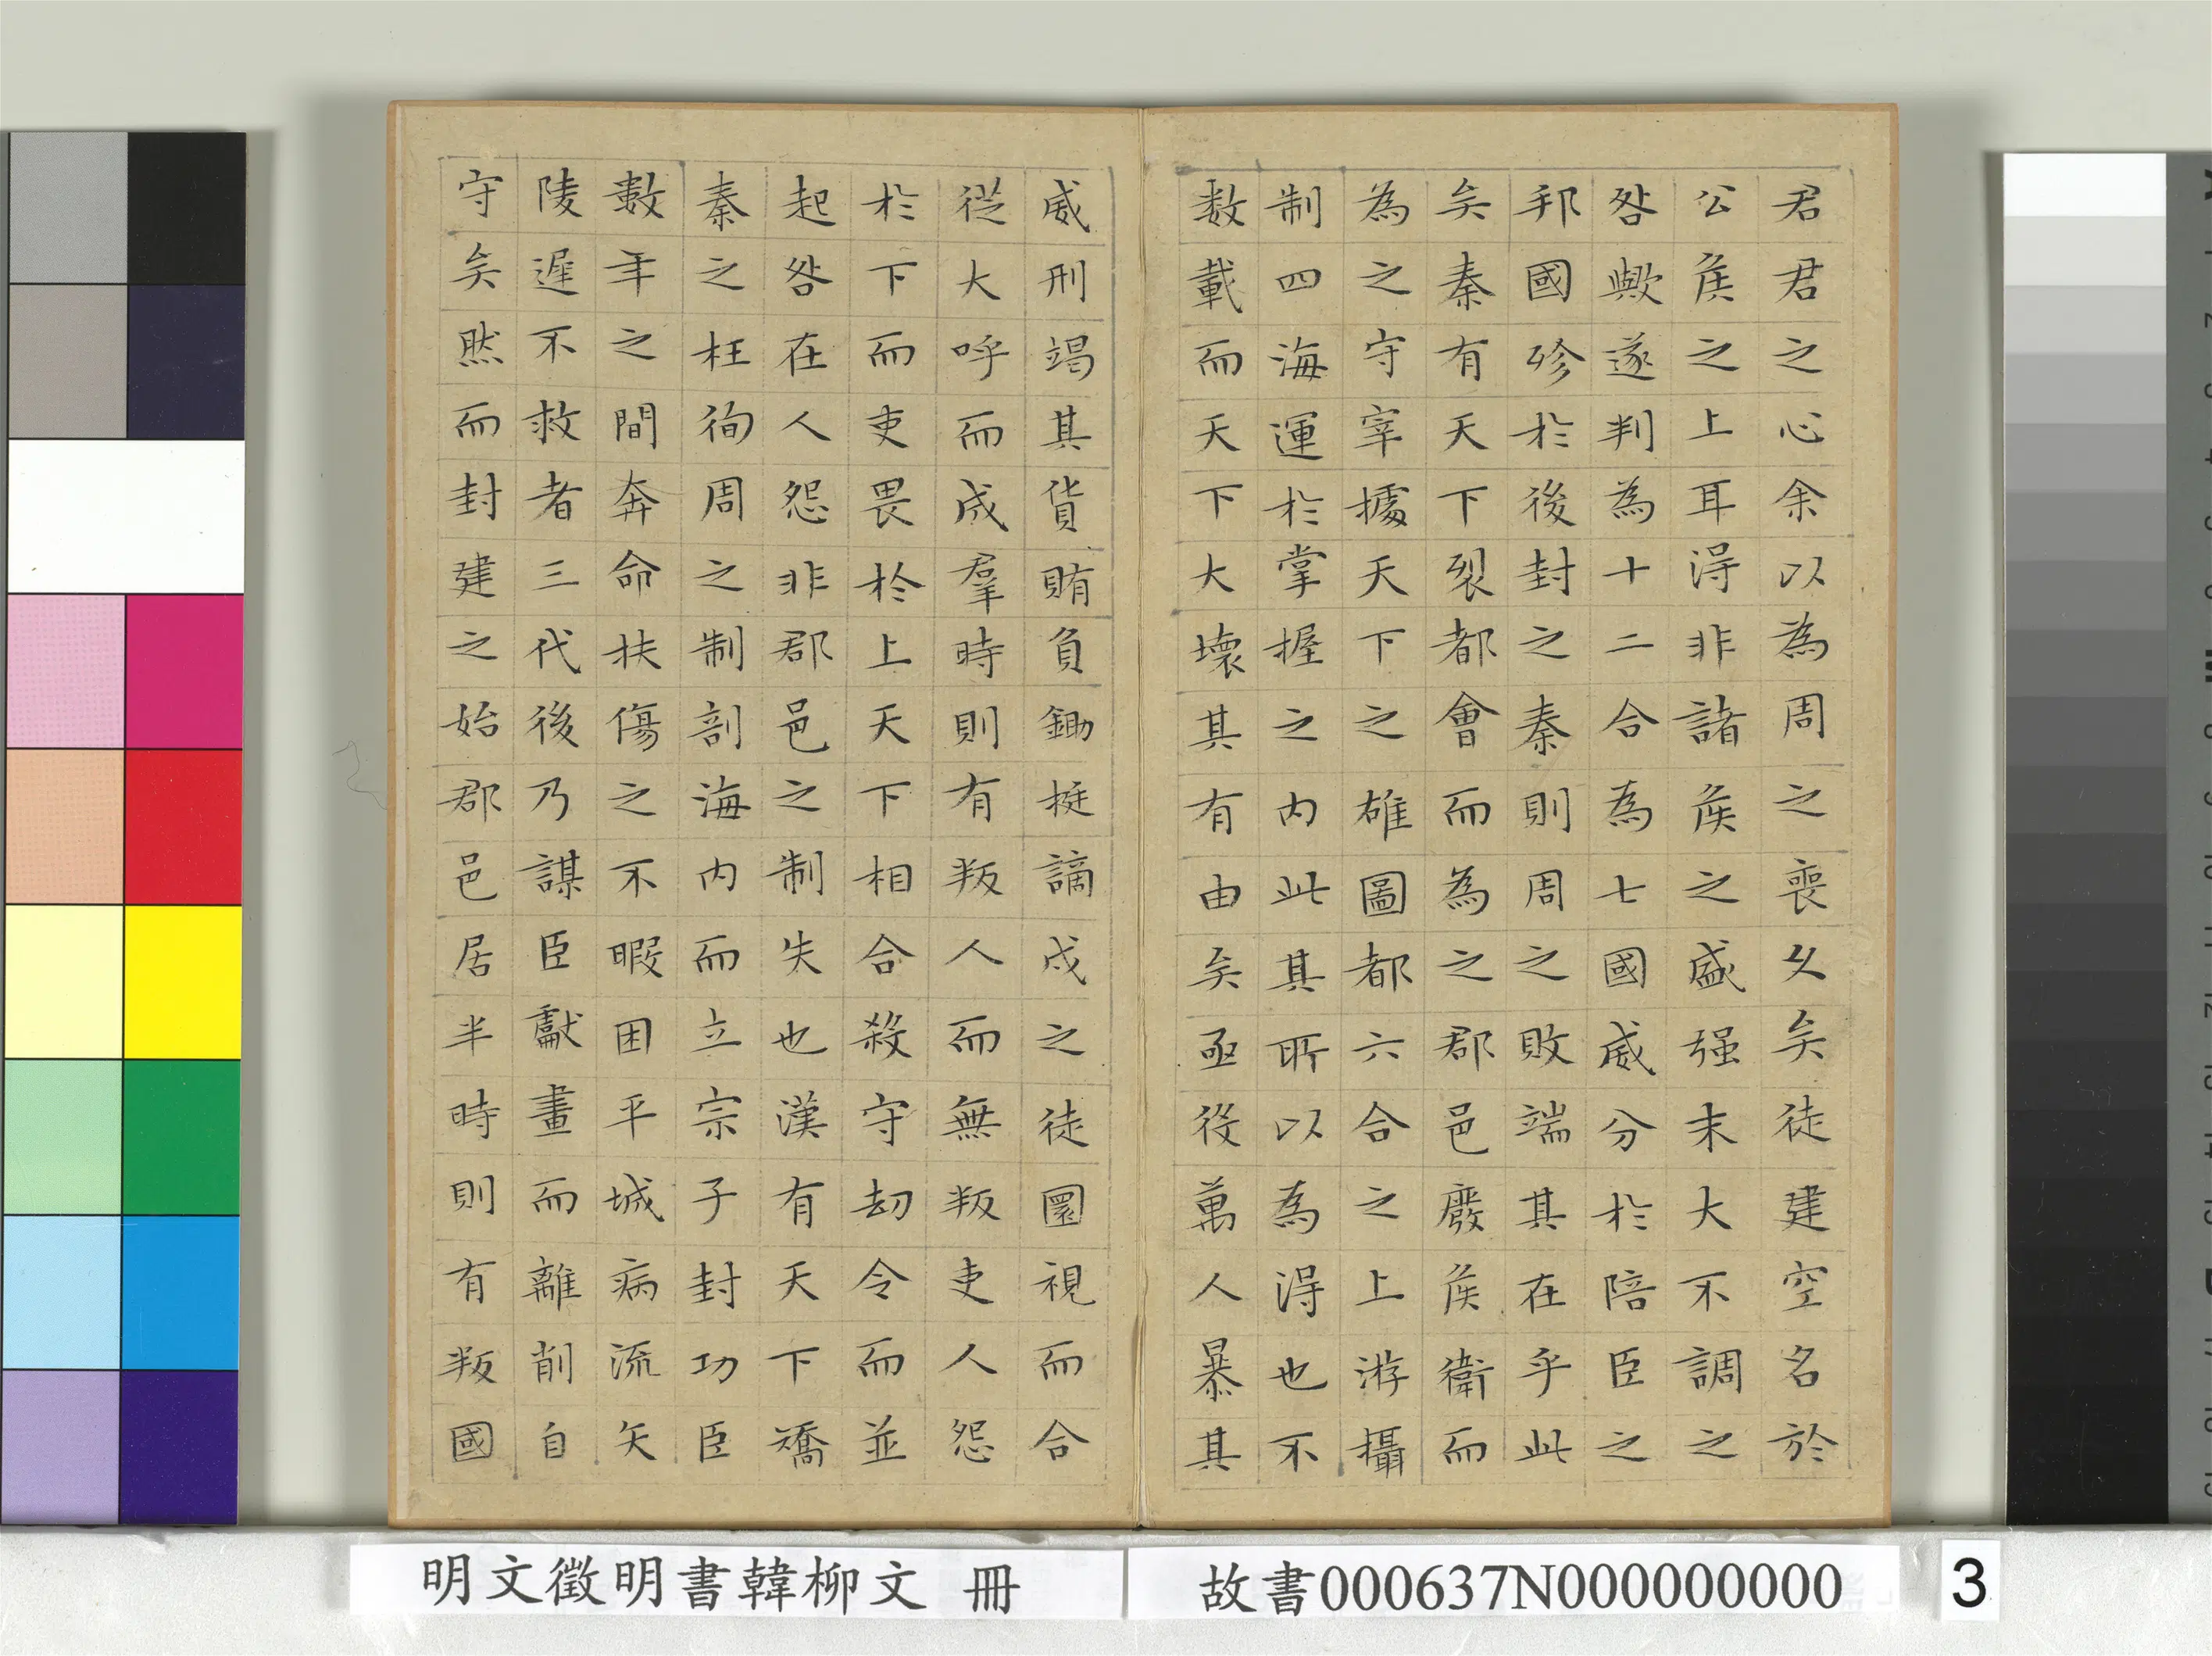 君君之心余以為周之喪久矣徒建空名於
公矦之上耳得非諸矦之盛强末大不調之
咎歟遂判為十二合為七國威分於陪臣之
邦國殄於後封之秦則周之敗端其在乎此
矣秦有天下裂都會而為之郡邑廢矦衛而
為之守宰據天下之雄圖都六合之上游攝
制四海運於掌握之內此其所以為得也不
数載而天下大壞其有由矣亟役萬人暴其
威刑竭其貨賄負鋤挺謫戍之徒圜視而合
從大呼而成羣時則有叛人而無叛吏人怨
於下而吏畏於上天下相合殺守刼令而並
起咎在人怨非郡邑之制失也漢有天下矯
秦之枉徇周之制剖海內而立宗子封功臣
數年之間奔命扶傷之不暇困平城病流矢
陵遲不救者三代後乃謀臣獻畫而離削自
守矣然而封建之始郡邑居半時則有叛國
明文徵明書韓柳文 冊
故書000637N000000000
3